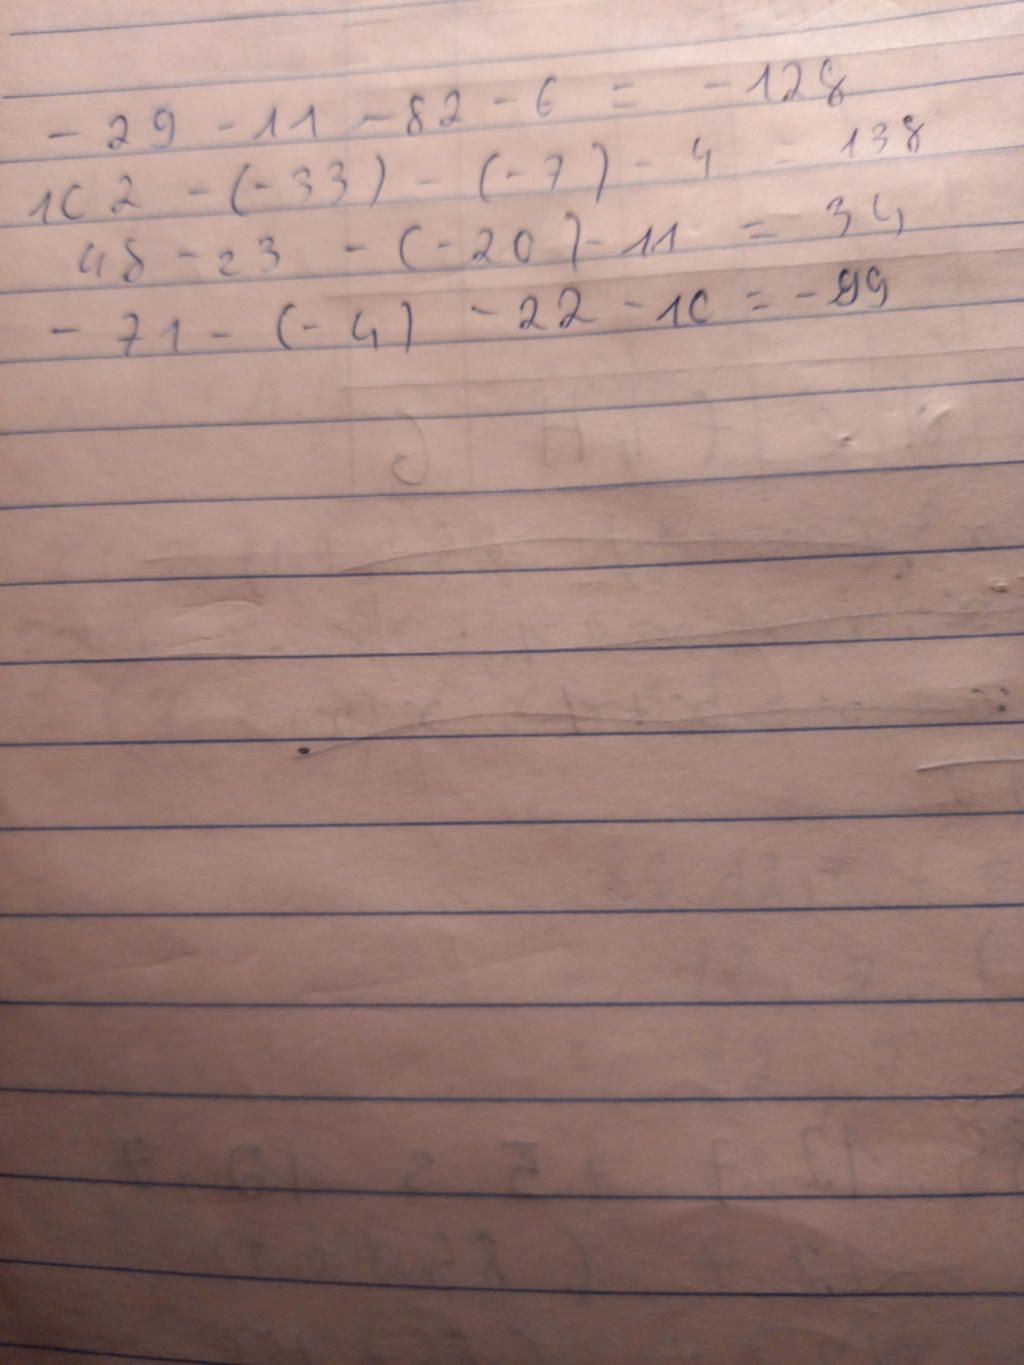 - 29 - 11 - 82 - 6 = - 128
102 - (- 33) - (- 7) - 4 = 138
48 - 23 - (- 20) - 11 = 34
- 71 - (- 4) - 22 - 10 = - 99